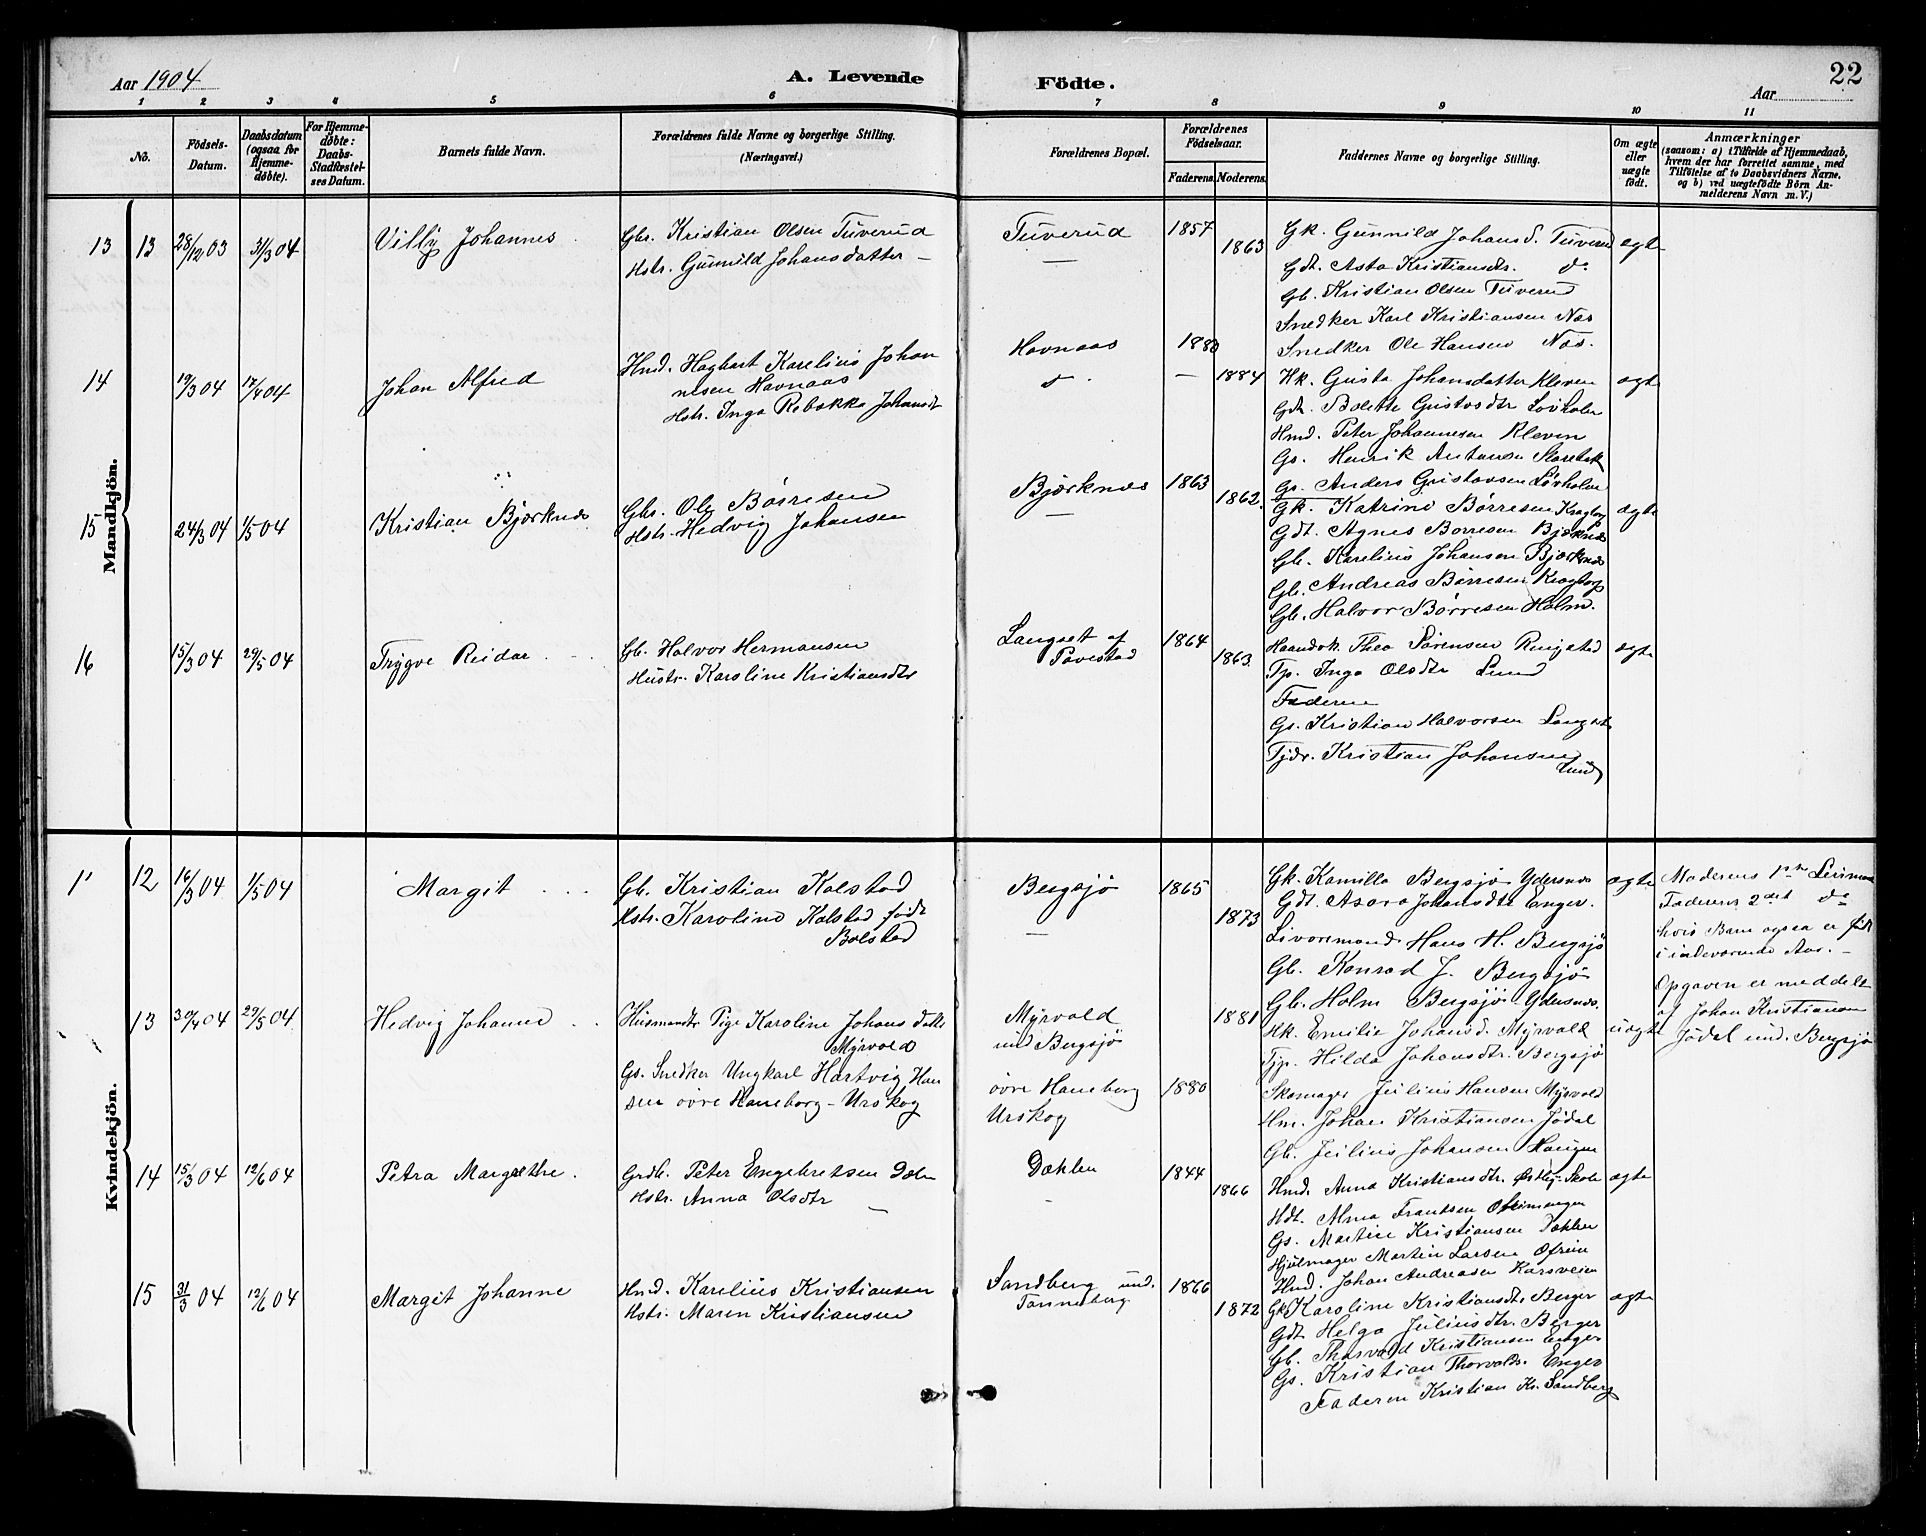 Aar 1904
A. Levende
Födte.
22
Aar
1 2 3 4 5 6 7 8 9 10 11
No.
Födsels-
Datum.
Daabsdatum
(ogsaa for
Hjemme-
döbte).
For Hjemme-
döbte:
Daabs-
Stadfæstel-
ses Datum.
Barnets fulde Navn.
Forældrenes fulde Navne og borgerlige Stilling.
(Næringsvei.)
Forældrenes Bopæl.
Forældrenes
Födselsaar.
Faderens. Moderens.
Faddernes Navne og borgerlige Stilling.
Om ægte
eller
uægte
födt.
Anmærkninger
(saasom: a) i Tilfælde af Hjemmedaab,
hvem der har forrettet samme, med
Tilföielse af to Daabsvidners Navne,
og b) ved uægtefödte Börn An-
melderens Navn m. V.)
Mandkjön.
13 13 28/12 03 31/3 04 Villy Johannes
Gbr. Kristian Olsen Tuverud
Hstr. Gunnild Johansdatter —
Tuverud
—
1857
1863
Gk. Gunnild Johansd. Tuverud
Gdt. Asta Kristiansdtr. do
Gb. Kristian Olsen Tuverud
Snedker Karl Kristiansen Næs
Snedker Ole Hansen Næs.
ægte
14 19/3 04 17/4 04 Johan Alfred
Hmd. Hagbart Karelius Johan
nesen Havnaas
Hstr. Inga Rebekka Johansdt
Havnaas
1880
— 1884
Hk. Gusta Johansdatter Kleven
Gdt. Bolette Gustavsdtr Lövholm
Hmd. Peter Johannesen Kleven
Gs. Henrik Antonsen
Gs. Anders Gustavsen Lövholm
ægte
15 24/3 04 1/5 04 Kristian Bjørknæs
Gbr. Ole Børresen
Hstr. Hedvig Johansen
Bjørknæs
—
1863
1862.
Gk. Katrine Børresen Kragtorp
Gdt. Agnes Børresen Bjørknæs
Gb. Karelius Johansen Bjørknæs
Gb. Andreas Børresen Kragtorp
Gb. Halvor Børresen Holm.
ægte
16 15/3 04 29/5 04 Trygve Reidar
Gb. Halvor Hermansen
Hustr. Karoline Kristiansdtr
Langset af
Tovestad
1864
1863.
Haandv. Thea Sørensen Ringstad
Tp. Inga Olsdtr Lund
Faderen
Gs. Kristian Halvorsen Langset
Tjdr. Kristian Johansen
Lund
ægte
Kvindekjön.
1' 12 16/3 04 1/5 04 Margit
Gb. Kristian Kolstad
Hstr. Karoline Kolstad født
Bolstad
Bergsjø
—
1865
1873
Gk. Kamilla Bergsjø Ydersnes
Gdt. Asora Johansdtr Enger.
Livorsmand Hans H. Bergsjø
Gb. Konrad J. Bergsjø
Gb. Holm Bergsjø Ydersnes.
ægte
Moderens 1ste
Faderens 2det do
hvis Barn ogsaa er født
i indeværende Aar. —
13 30/4 04 29/5 04 Hedvig Johanne
Husmandsdtr Pige Karoline Johansdatter
Myrvold
Gs. Snedker Ungkarl Hartvig Han
sen øvre Haneborg - Urskog
Myrvold
und Bergsjø
øvre Haneborg
Urskog
1881
1880
Hk. Emilie Johansd. Myrvold
Tjp. Hilda Johansdtr. Bergsjø
Skomager Julius Hansen Myrvold
Hm. Johan Kristiansen Jødal
Gb. Julius Johansen Haugen
uægte
Opgaven er meddelt
af Johan Kristiansen
Jødal und. Bergsjø
14 15/3 04 12/6 04 Petra Margrethe.
Grdb. Peter Engebretsen Dælen
Hstr. Anna Olsdtr —
Dæhlen
1844
1866
Hmd. Anna Kristiansdtr. Østby-Skole
Hdt. Alma Frantsen
Gs. Martin Kristiansen Dæhlen
Hjulmager Martin Larsen Ofreim
Hmd. Johan Andreasen Korsveien
ægte
15 31/3 04 12/6 04 Margit Johanne
Hmd. Karelius Kristiansen
Hstr. Maren Kristiansen
Sandberg und.
Tonneberg
1866
1872
Gk. Karoline Kristiansdtr. Berger
Gdt Helga Juliusdtr. Berger
Gb. Thorvald Kristiansen Enger
Gs. Kristian Thorvalds. Enger
Faderen Kristian Kr. Sandberg
ægte